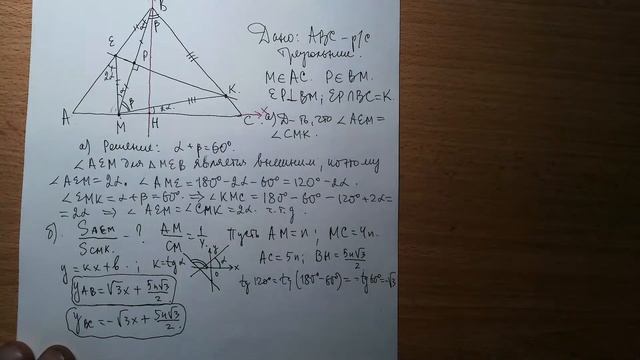 B
α β
E
2α P
K
α β 2α
A M H C x
Дано: ABC – р/с
треугольник.
M∈AC. P∈BM.
EP⊥BM; EP∩BC=K.
а) Д-ть, что ∠AEM=
∠CMK.
а) Решение: α+β=60°.
∠AEM для ΔMEB является внешним, поэтому
∠AEM=2α. ∠AME=180°-2α-60°=120°-2α.
∠EMK=α+β=60°. ⇒ ∠KMC=180°-60°-120°+2α=
=2α ⇒ ∠AEM=∠CMK=2α. ч.т.д.
б). S_AEM/S_CMK - ? AM/CM=1/4. Пусть AM=n; MC=4n.
AC=5n; BH=5n√3/2
y=kx+b; k=tgα y α 0 x
tg 120°=tg(180°-60°)=-tg60°=-√3
y_AB=√3x+5n√3/2
y_BC=-√3x+5n√3/2.